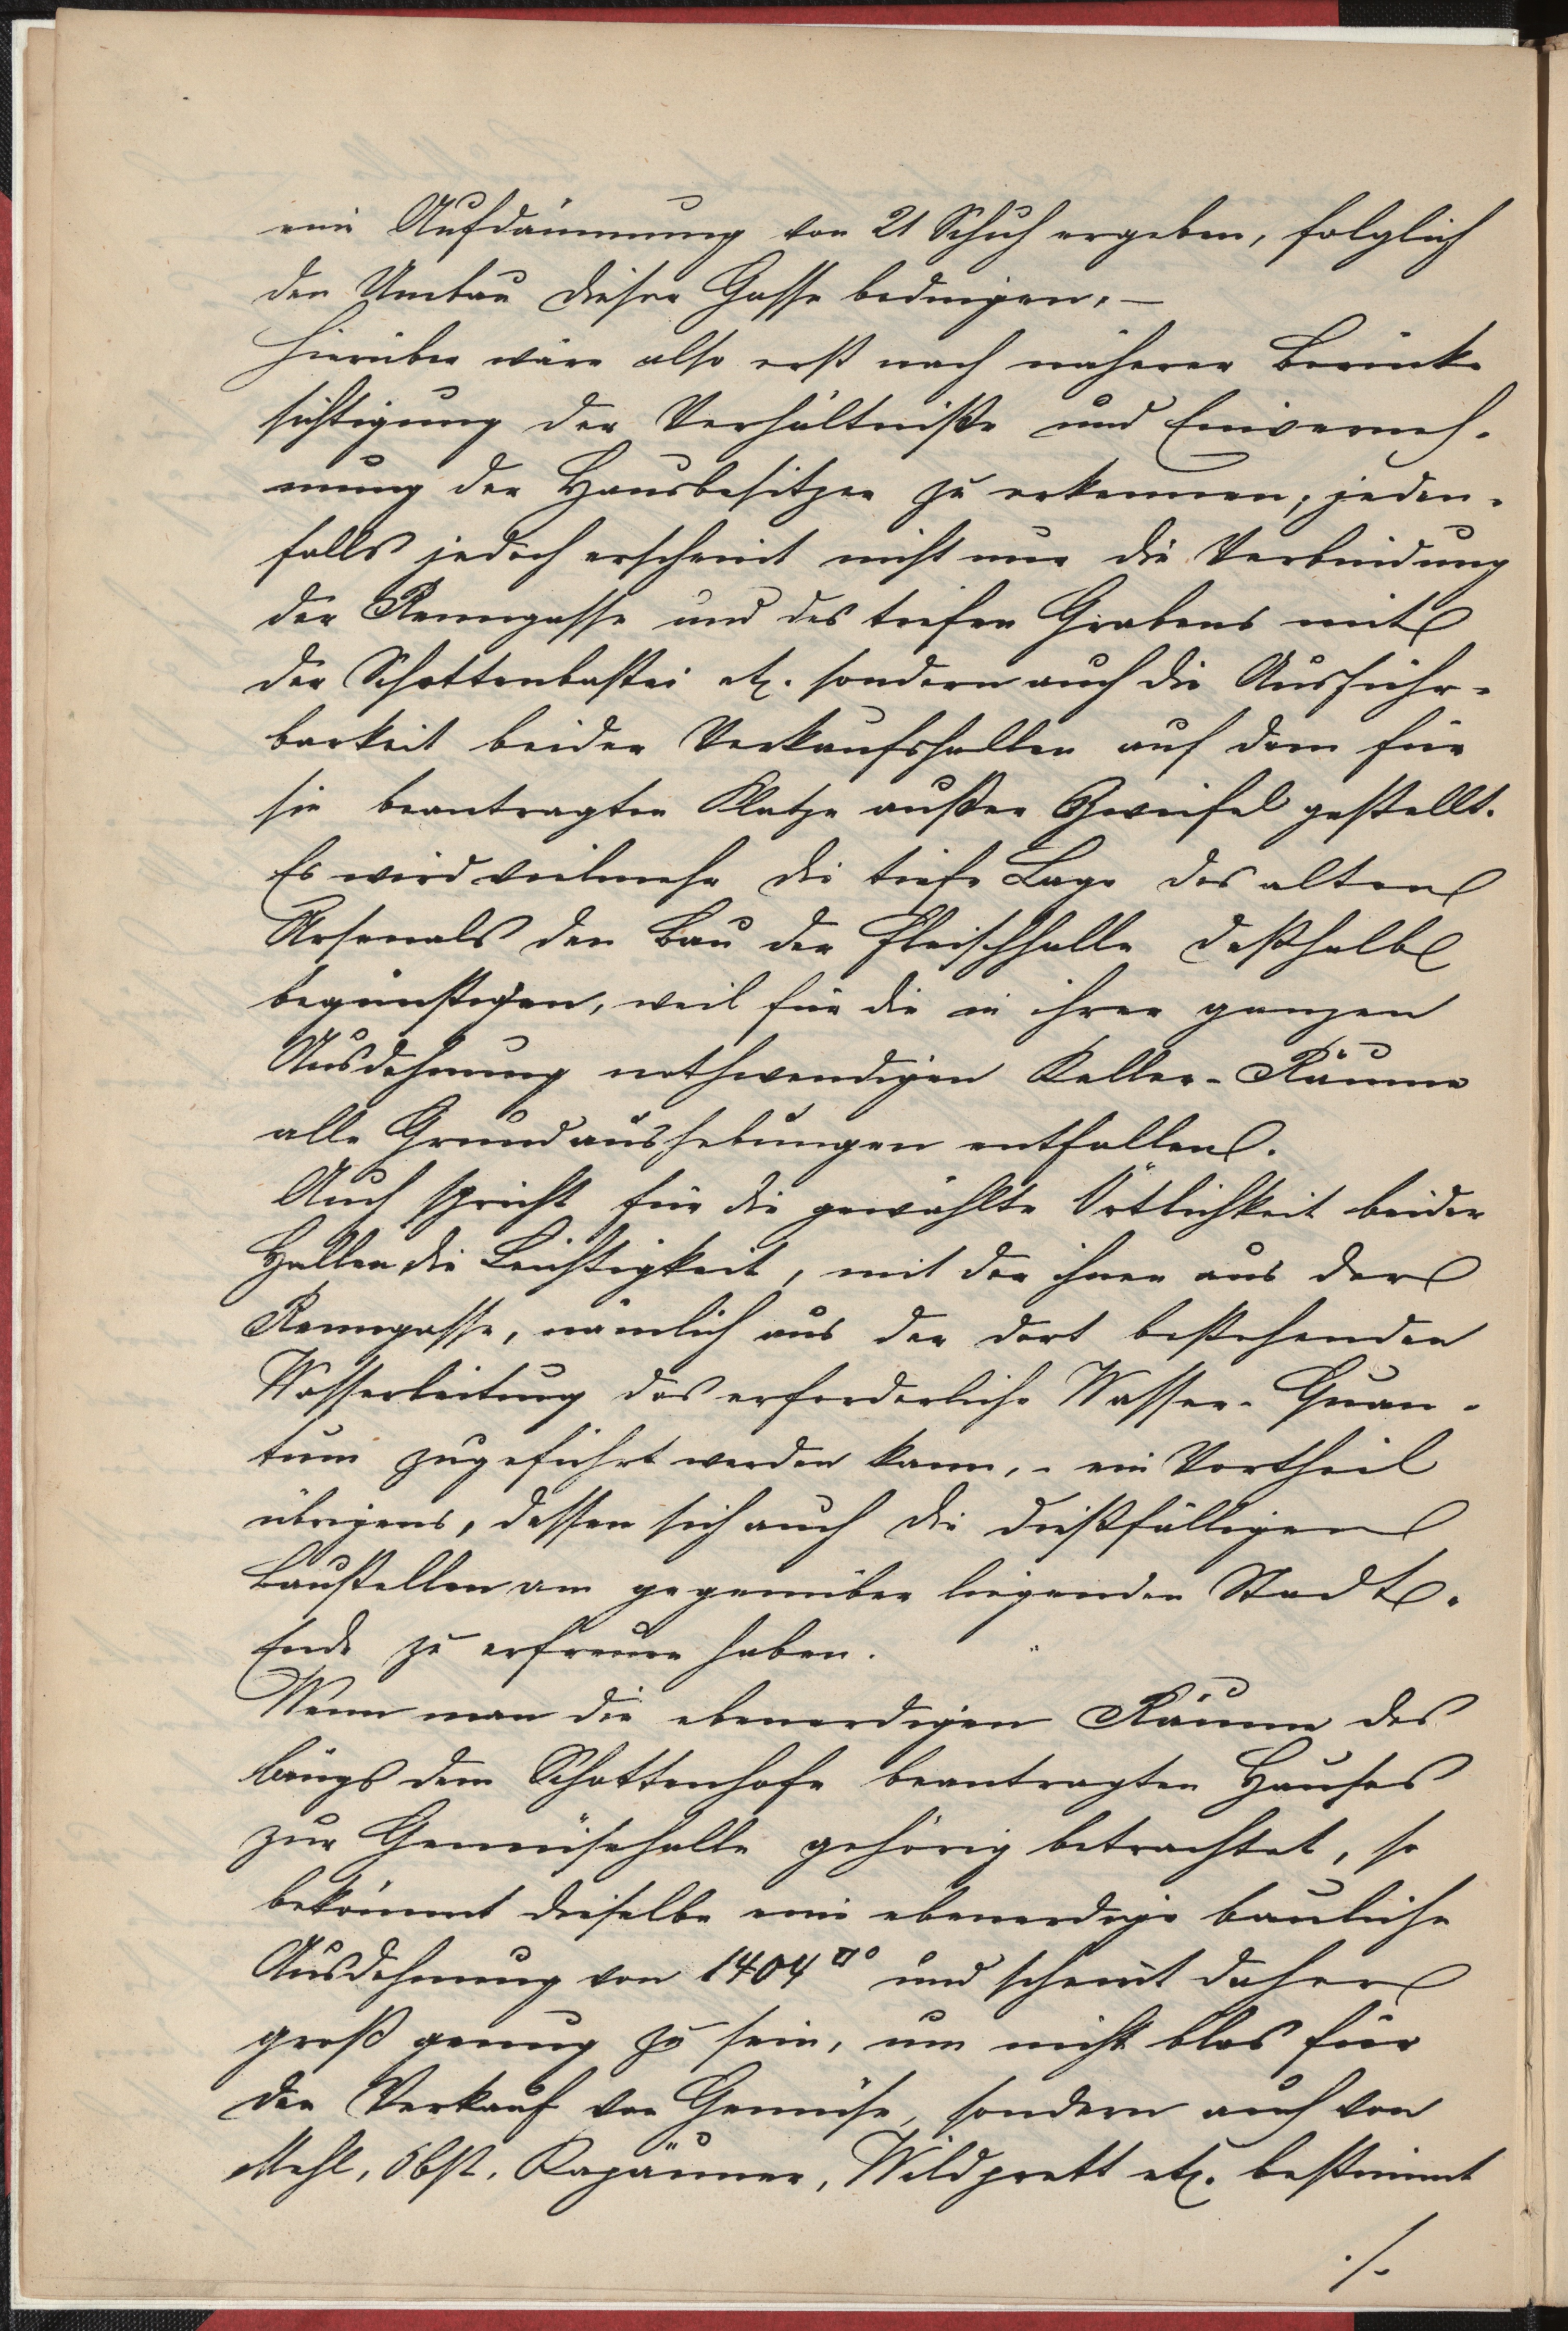 eine Aufdämmung von 21 Schuh ergeben, folglich
den Umbau dieser Gasse bedingen. –
Hierüber wäre also erst nach näherer Berück-
sichtigung der Verhältniße und Einverneh-
mung der Hausbesitzer zu erkennen; jeden-
falls jedoch erscheint nicht nur die Verbindung
der Renngasse und des tiefen Grabens mit
der Schottenbastei etz. sondern auch die Ausführ-
barkeit beider Verkaufshallen auf dem für
sie beantragten Platze außer Zweifel gestellt.
Es wird vielmehr die tiefe Lage des alten
Arsenals den Bau der Fleischhalle deßhalb
begünstigen, weil für die in ihrer ganzen
Ausdehnung nothwendigen Keller-Räume
alle Grundaushebungen entfallen.
Auch spricht für die gewählte Örtlichkeit beider
Hallen die Leichtigkeit, mit der ihnen aus der
Renngasse, nämlich aus der dort bestehenden
Wasserleitung das erforderliche Wasser-Quan-
tum zugeführt werden kann, - ein Vortheil
übrigens, dessen sich auch die dießfälligen
Baustellen am gegenüber liegenden Stadt-
Ende zu erfreuen haben.
Wenn man die ebenerdigen Räume des
längs dem Schottenhofe beantragten Hauses
zur Gemüsehalle gehörig betrachtet, so
bekömmt dieselbe eine ebenerdige bauliche
Ausdehnung von 1404 □° und scheint daher
groß genug zu sein, um nicht blos für
den Verkauf von Gemüse, sondern auch von
Mehl, Obst, Kapäuner, Wildprett etz. bestimmt
./.